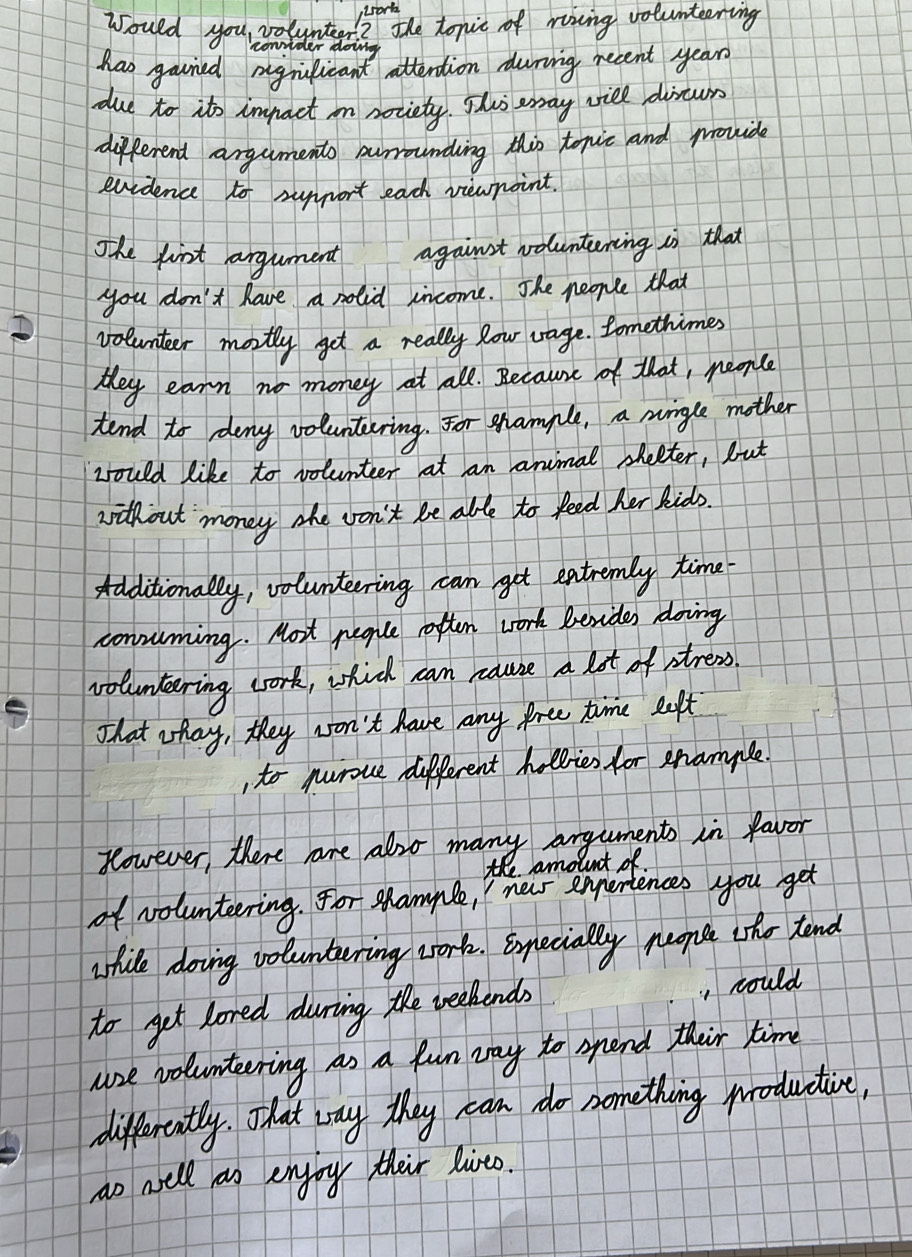 Would you consider doing volunteer work? The topic of rising volunteering
has gained significant attention during recent years
due to its impact on society. This essay will discuss
different arguments surrounding this topic and provide
evidence to support each viewpoint.
The first argument against volunteering is that
you don't have a solid income. The people that
volunteer mostly get a really low wage. Somethimes
they earn no money at all. Because of that, people
tend to deny volunteering. For example, a single mother
would like to volunteer at an animal shelter, but
without money she won't be able to feed her kids.
Additionally, volunteering can get extremly time-
consuming. Most people often work besides doing
volunteering work, which can cause a lot of stress.
That whay, they won't have any free time left
, to pursue different hobbies for example.
However, there are also many arguments in favor
of volunteering. For example, the amount of new experiences you get
while doing volunteering work. Especially people who tend
to get bored during the weekends , could
use volunteering as a fun way to spend their time
differently. That way they can do something productive,
as well as enjoy their lives.